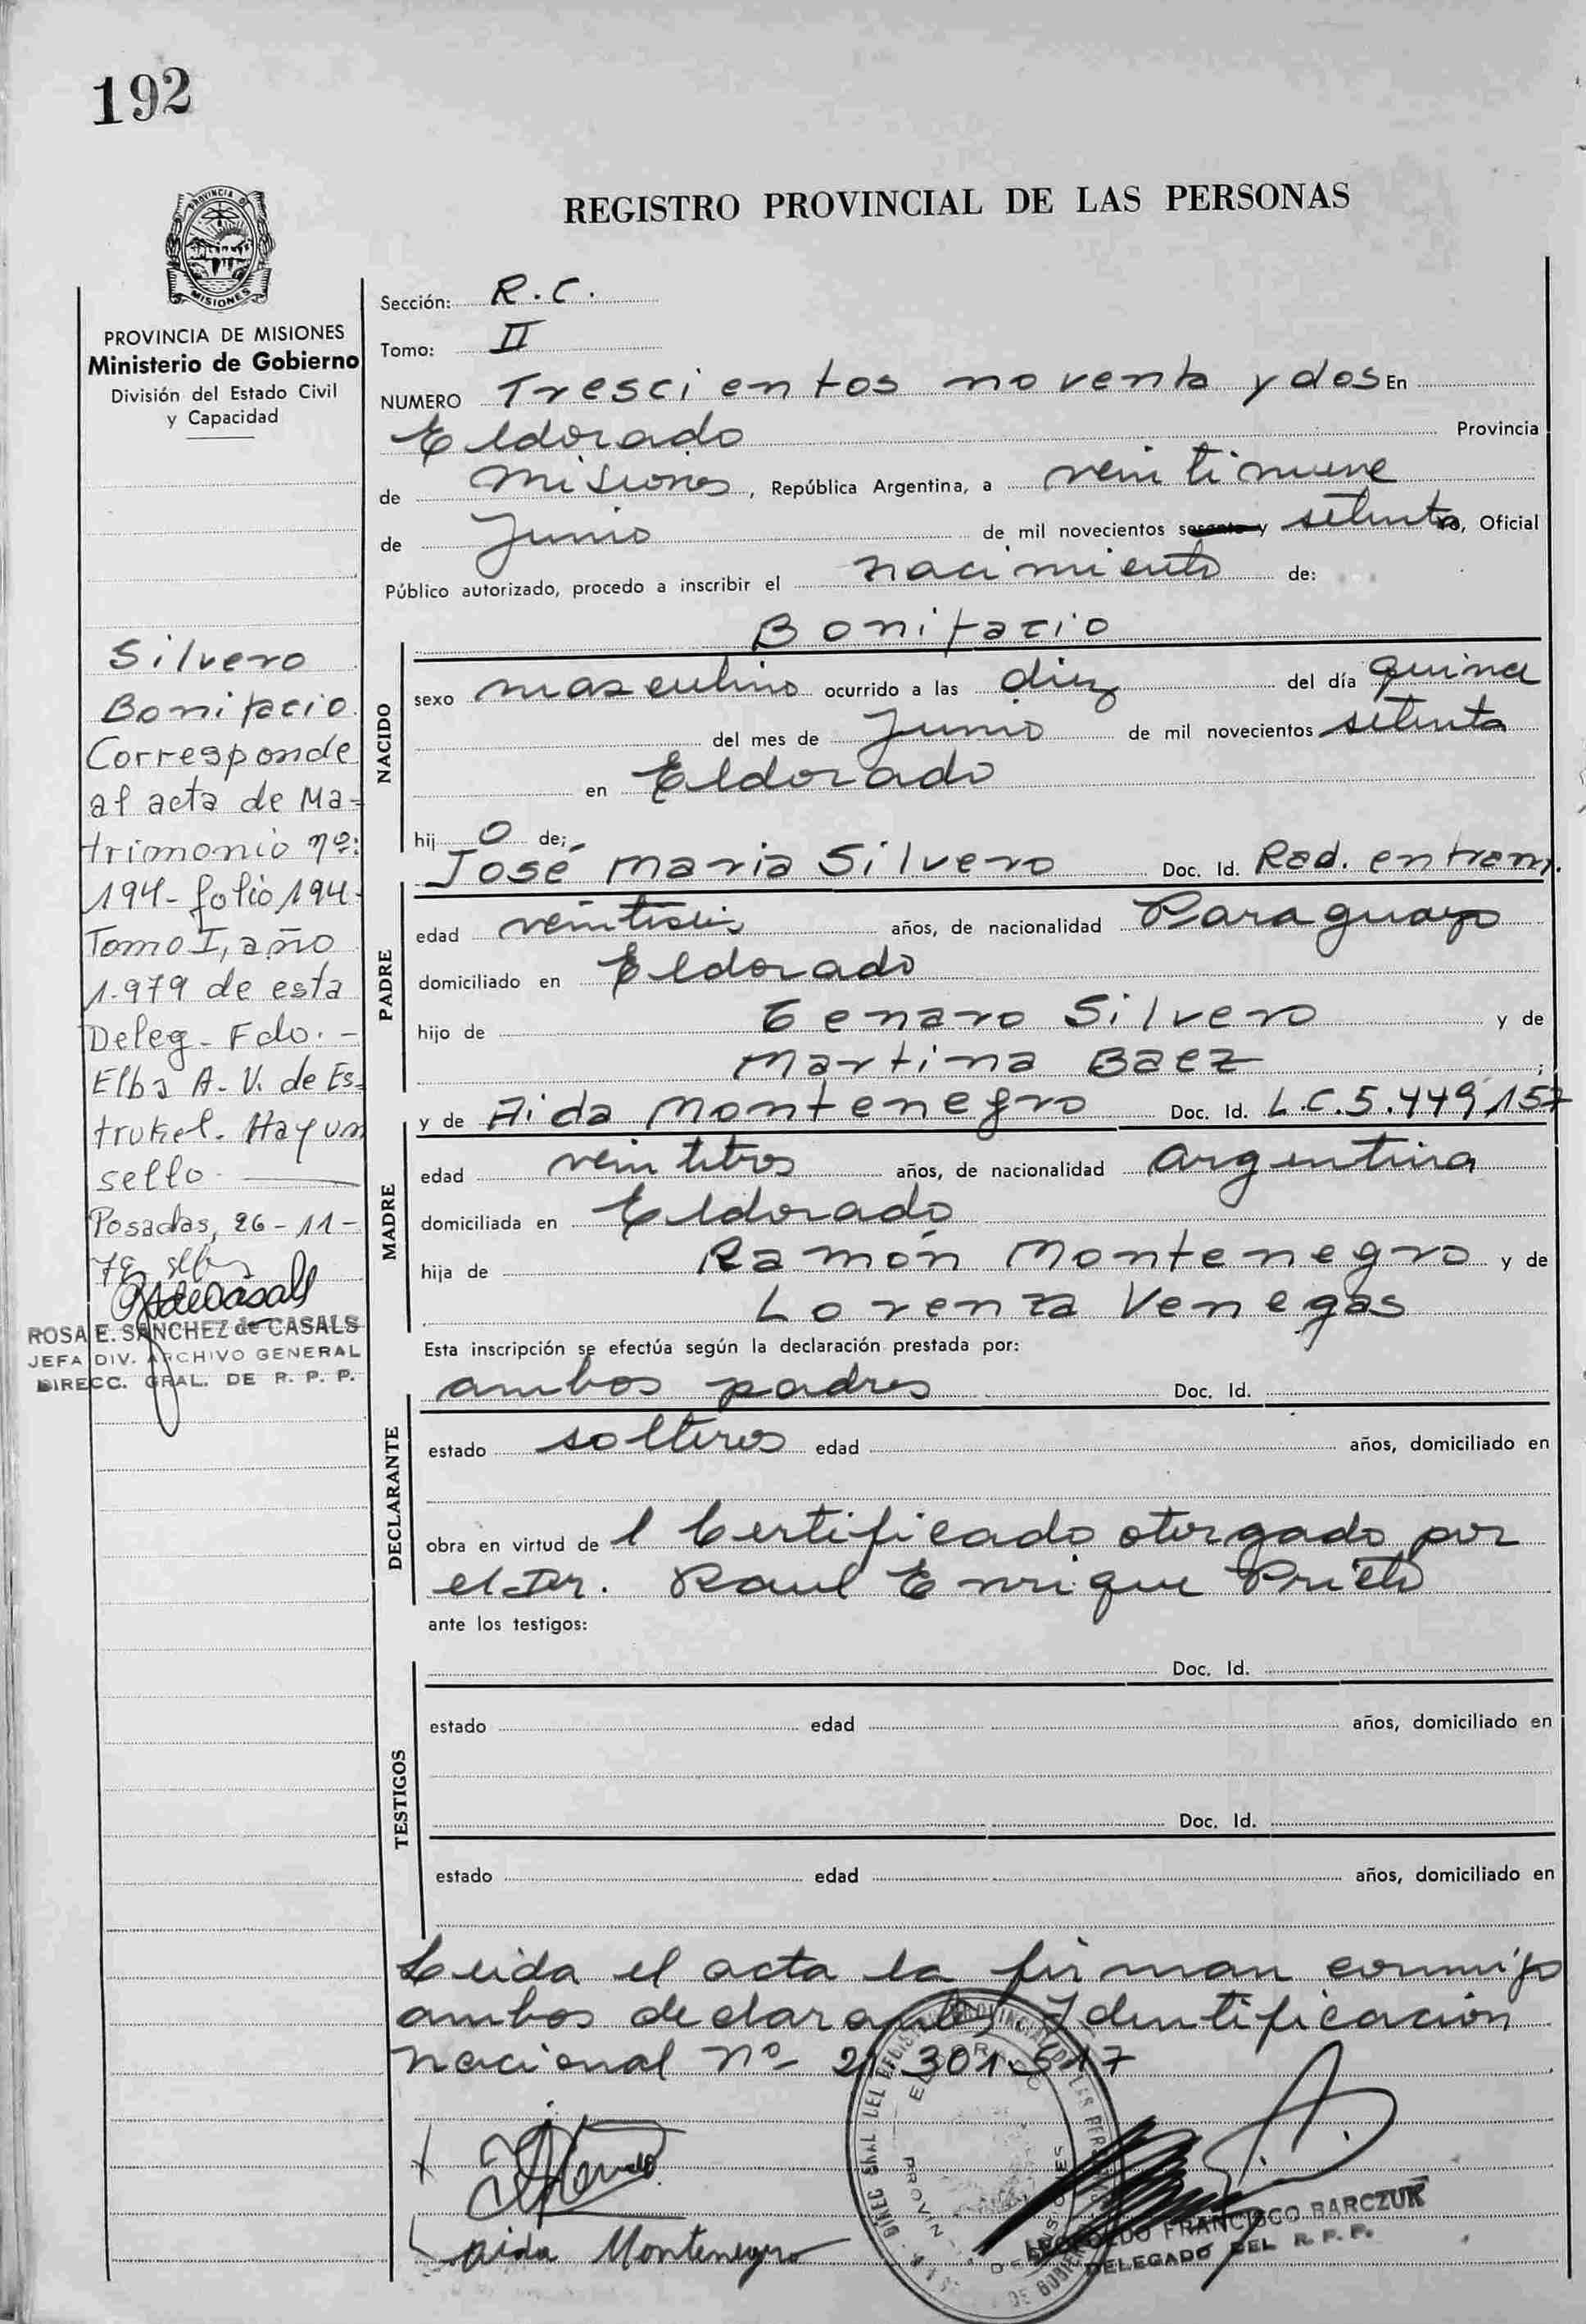 192
REGISTRO PROVINCIAL DE LAS PERSONAS
PROVINCIA DE
MISIONES
PROVINCIA DE MISIONES
Ministerio de Gobierno
División del Estado Civil
y Capacidad
Silvero
Bonifacio
Corresponde
al acta de Ma-
trimonio nº:
194- folio 194-
Tomo I, año
1.979 de esta
Deleg- Fdo. -
Elba A. V. de Es-
trukel. Hay un
sello
Posadas, 26-11-
79
ROSA E. SANCHEZ de CASALS
JEFA DIV. ARCHIVO GENERAL
DIRECC. GRAL. DE R. P. P.
Sección: R.C.
Tomo: II
NUMERO Trescientos noventa y dos En
Eldorado Provincia
de Misiones, República Argentina, a veintinueve
de Junio de mil novecientos sesenta y setenta, Oficial
Público autorizado, procedo a inscribir el nacimiento de:
Bonifacio
NACIDO
sexo masculino ocurrido a las diez del día quince
del mes de Junio de mil novecientos setenta
en Eldorado
hij o de;
José Maria Silvero Doc. Id. Rad. en tram.
PADRE
edad veintiseis años, de nacionalidad Paraguayo
domiciliado en Eldorado
hijo de Genaro Silvero y de
Martina Baez ;
y de Aida Montenegro Doc. Id. L.C. 5.449.157
MADRE
edad veintitres años, de nacionalidad argentina
domiciliada en Eldorado
hija de Ramón Montenegro y de
Lorenza Venegas
Esta inscripción se efectúa según la declaración prestada por:
ambos padres Doc. Id.
DECLARANTE
estado solteros edad años, domiciliado en
obra en virtud de l Certificado otorgado por
el Dr. Raul Enrique Prieto
ante los testigos:
Doc. Id.
TESTIGOS
estado edad años, domiciliado en
Doc. Id.
estado edad años, domiciliado en
Leida el acta la firman conmigo
ambos declarantes, Identificación
nacional nº 21.301.517
Aida Montenegro
LEOPOLDO FRANCISCO BARCZUK
DELEGADO DEL R. P. P.